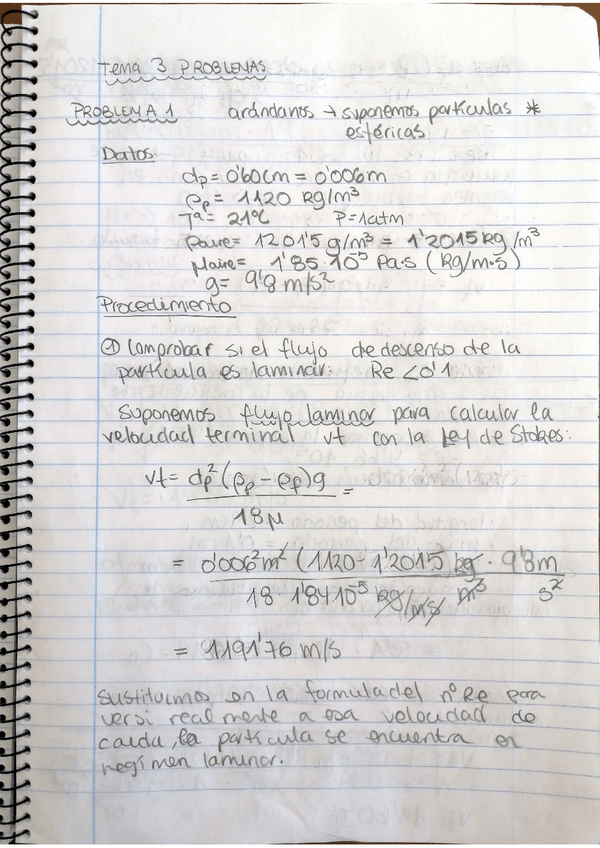 Tema 3 PROBLEMAS
PROBLEMA 1 arándanos → suponemos partículas *
esféricas
Datos
dp = 0'60cm = 0'006m
ρp = 1120 kg/m³
Tª = 21ºC P=1atm
ρaire = 1201'5 g/m³ = 1'2015 kg/m³
μaire = 1'85·10⁻⁵ Pa·s (kg/m·s)
g = 9'8 m/s²
Procedimiento
① Comprobar si el flujo de descenso de la
partícula es laminar: Re < 0'1
Suponemos flujo laminar para calcular la
velocidad terminal vt con la Ley de Stokes:
vt = dp² (ρp - ρf) g =
18 μ
= 0'006² m² (1120 - 1'2015) kg · 9'8 m
18 · 1'84·10⁻⁵ kg/m·s m³ s²
= 1191'76 m/s
Sustituimos en la formula del nº Re para
ver si realmente a esa velocidad de
caída, la partícula se encuentra en
regímen laminar.